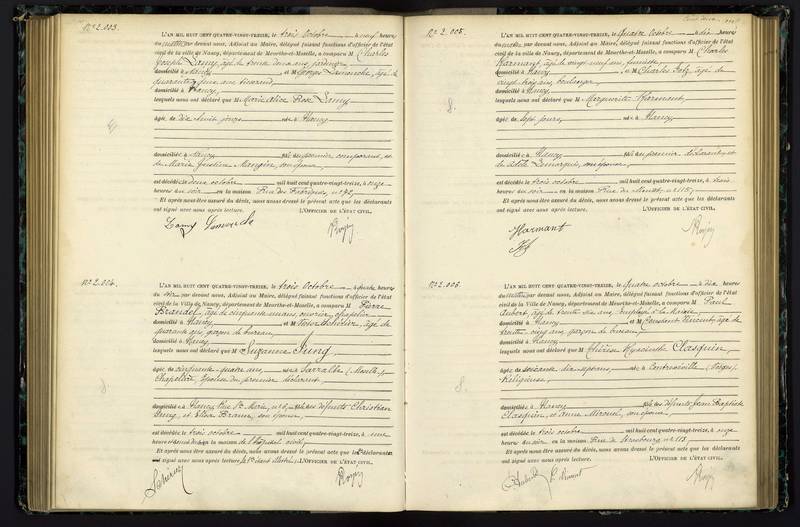 N° 2.003.
L'AN MIL HUIT CENT QUATRE-VINGT-TREIZE, le trois Octobre à neuf heures
du matin, par devant nous, Adjoint au Maire, délégué faisant fonctions d'officier de l'état
civil de la ville de Nancy, département de Meurthe-et-Moselle, a comparu M Charles
Joseph Lamy, âgé de trente deux ans, jardinier,
domicilié à Nancy et M Georges Lamarche, âgé de
quarante
domicilié à Nancy,
lesquels nous ont déclaré que M Marie Alice Rose Lamy
âgée de dix huit jours née à Nancy
domicilié à Nancy fille du premier comparant, et
de Marie Justine Mangin, son épouse,
est décédée le deux octobre mil huit cent quatre-vingt-treize, à onze
heures du soir en la maison Rue des Fabriques, n° 42,
Et après nous être assuré du décès, nous avons dressé le présent acte que les déclarants
ont signé avec nous après lecture. L'OFFICIER DE L'ÉTAT CIVIL,
Lamy
N° 2.004.
L'AN MIL HUIT CENT QUATRE-VINGT-TREIZE, le trois Octobre à quatre heures
du soir par devant nous, Adjoint au Maire, délégué faisant fonctions d'officier de l'état
civil de la ville de Nancy, département de Meurthe-et-Moselle, a comparu M Pierre
Brandel, âgé de cinquante ans, ouvrier chapelier
domicilié à Nancy et M Victor âgé de
quarante ans, garçon de bureau,
domicilié à Nancy,
lesquels nous ont déclaré que M Suzanne Jung,
âgée de cinquante quatre ans, née à Sarralbe (Moselle)
Chapelière, épouse du premier déclarant,
domiciliée à Nancy, Rue Ste Marie, n° 6, fille des défunts Christian
Jung, et Elise Braun, son épouse,
est décédée le trois octobre mil huit cent quatre-vingt-treize, à une
heure en la maison de l'hôpital civil,
Et après nous être assuré du décès, nous avons dressé le présent acte que les déclarants
signé avec nous après lecture, L'OFFICIER DE L'ÉTAT CIVIL,
N° 2.005.
L'AN MIL HUIT CENT QUATRE-VINGT-TREIZE, le quatre Octobre à dix heures
du matin, par devant nous, Adjoint au Maire, délégué faisant fonctions d'officier de l'état
civil de la ville de Nancy, département de Meurthe-et-Moselle, a comparu M Charles
Harmant, âgé de vingt neuf ans,
domicilié à Nancy et M Charles âgé de
vingt trois ans, boulanger,
domicilié à Nancy,
lesquels nous ont déclaré que M Marguerite Harmant,
âgée de sept jours, née à Nancy
domiciliée à Nancy fille du premier déclarant, et
de son épouse,
est décédée le trois octobre mil huit cent quatre-vingt-treize, à trois
heures du soir en la maison Rue du n° 115,
Et après nous être assuré du décès, nous avons dressé le présent acte que les déclarants
ont signé avec nous après lecture. L'OFFICIER DE L'ÉTAT CIVIL,
Harmant
N° 2.006.
L'AN MIL HUIT CENT QUATRE-VINGT-TREIZE, le quatre octobre à dix heures
du matin, par devant nous, Adjoint au Maire, délégué faisant fonctions d'officier de l'état
civil de la ville de Nancy, département de Meurthe-et-Moselle, a comparu M Paul
Aubert, âgé de trente six ans, employé à la Mairie,
domicilié à Nancy et M Constant Vincent, âgé de
trente cinq ans, garçon de bureau,
domicilié à Nancy
lesquels nous ont déclaré que M Thérèse Hyacinthe Clasquin,
âgée de soixante dix sept ans née à Contrexéville (Vosges)
Religieuse,
domiciliée à Nancy fille des défunts Jean Baptiste
Clasquin, et Anne Mirouel, son épouse,
est décédée le trois octobre mil huit cent quatre-vingt-treize, à onze
heures du soir en la maison Rue de Strasbourg n° 113,
Et après nous être assuré du décès, nous avons dressé le présent acte que les déclarants
ont signé avec nous après lecture. L'OFFICIER DE L'ÉTAT CIVIL,
Aubert Vincent